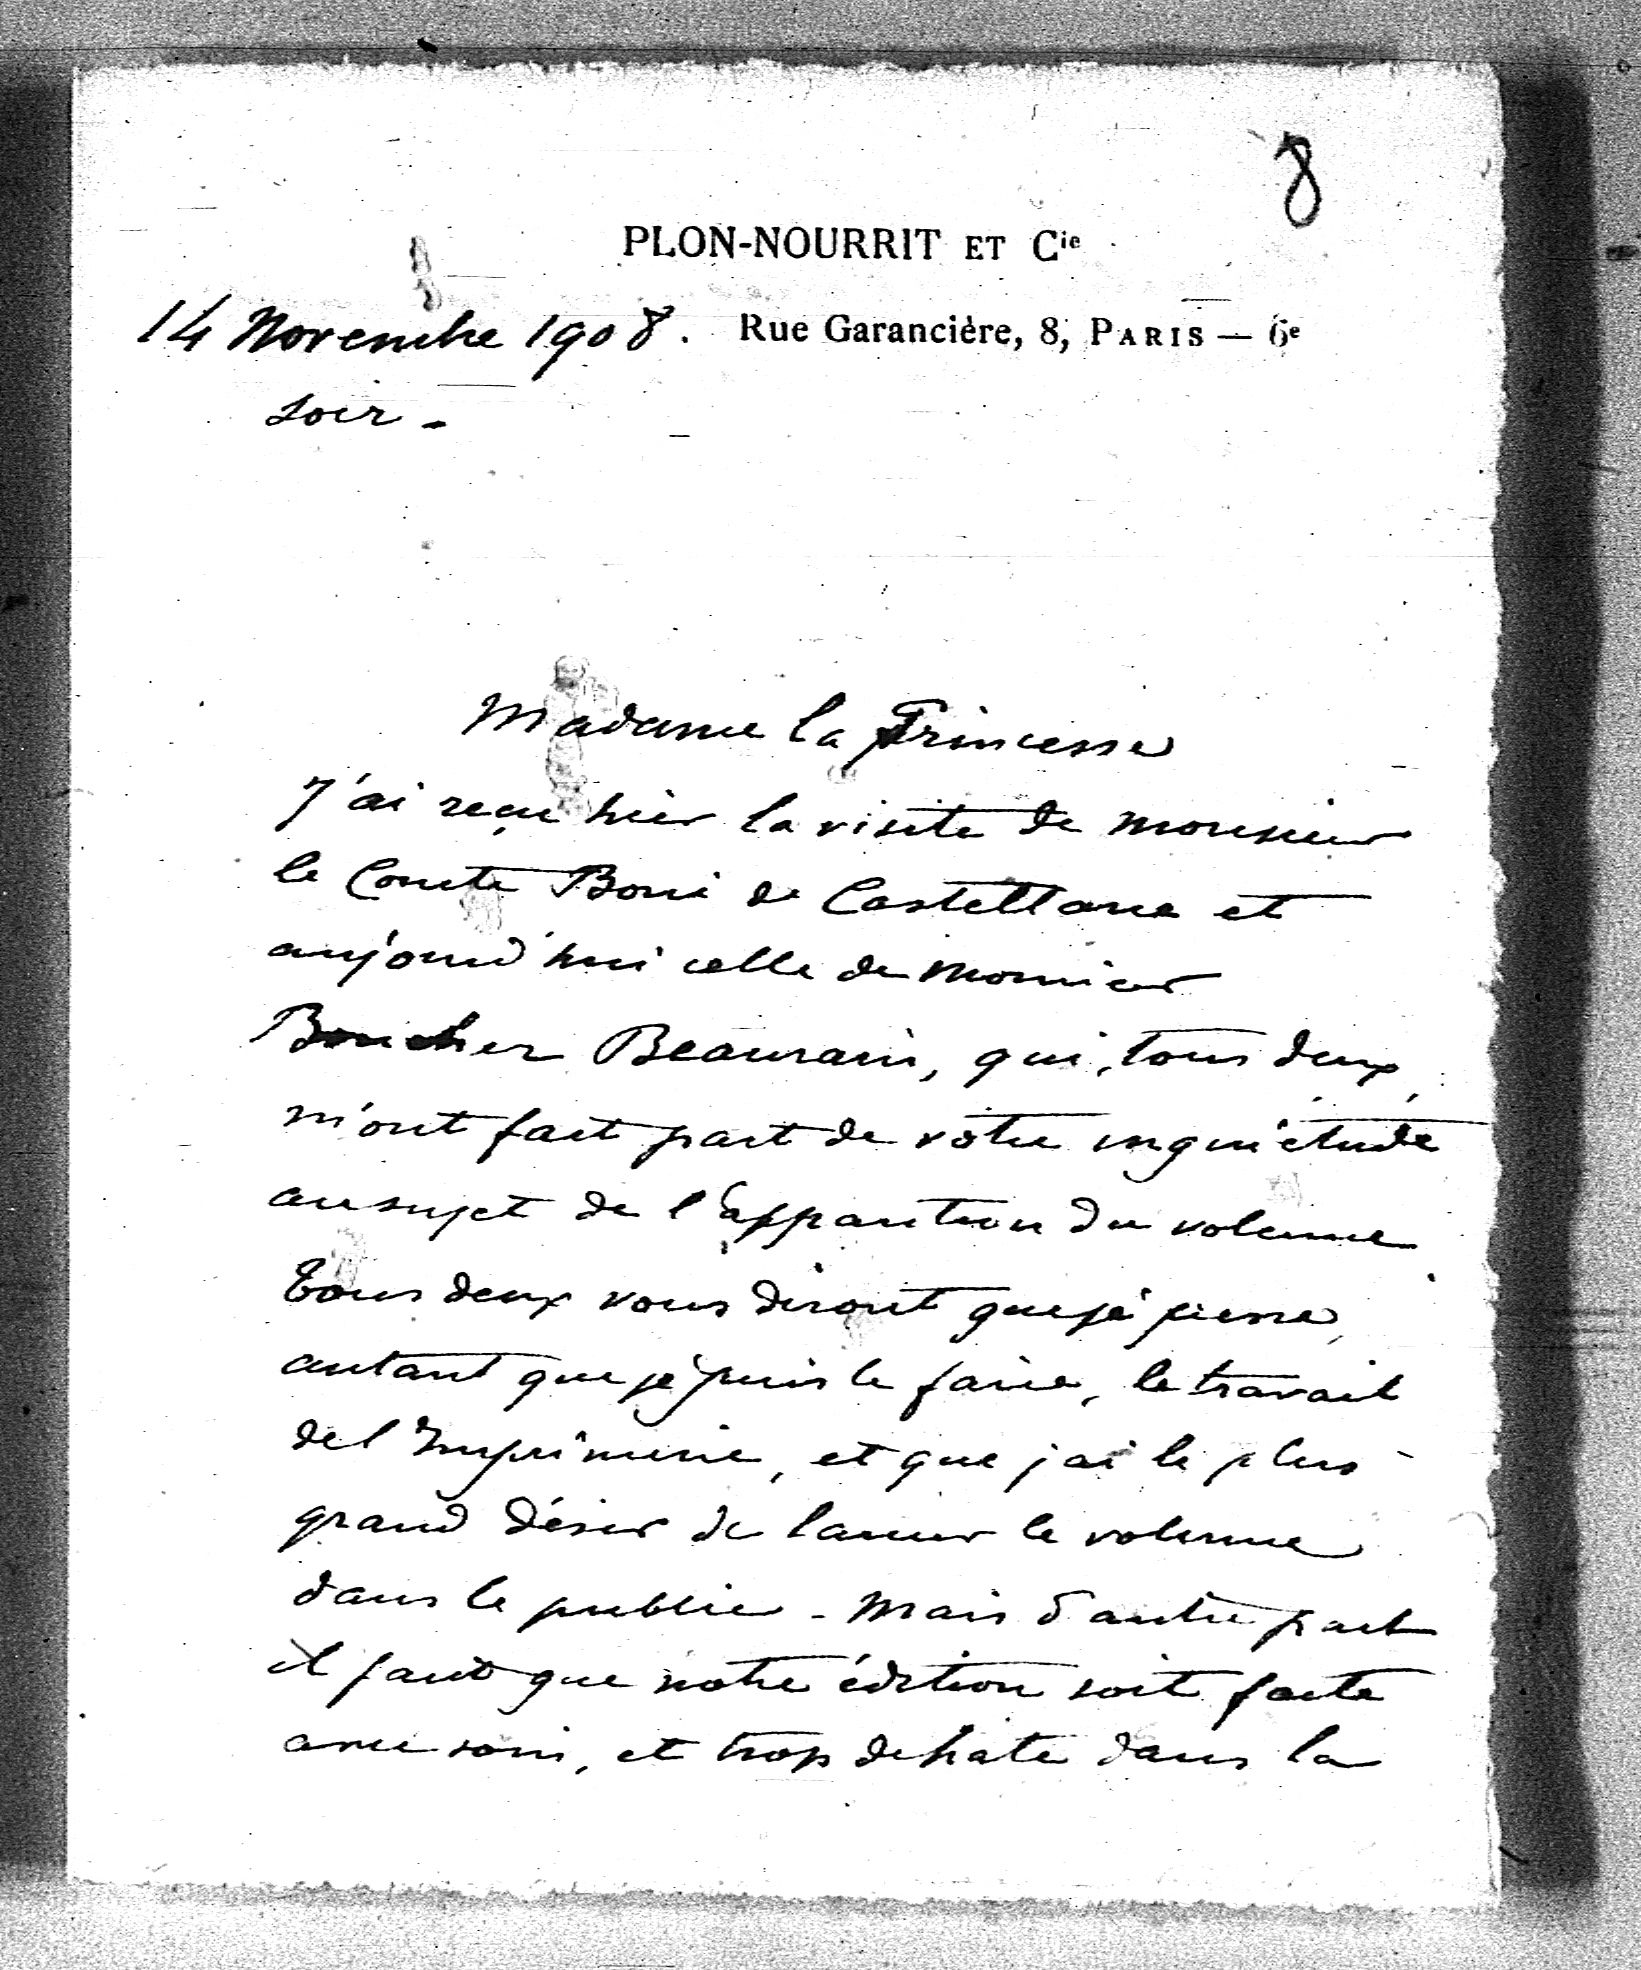 8
PLON-NOURRIT ET Cie
14 Novembre 1908. Rue Garancière, 8, PARIS — 6e
soir.
Madame la Princesse
J'ai reçu hier la visite de Monsieur
le Comte Boni de Castellane et
aujourd'hui celle de Monsieur
Beaurain, qui, tous deux,
m'ont fait part de votre inquiétude
au sujet de l'apparition du volume
Tous deux vous diront que je presse,
autant que je puis le faire, le travail
de l'Imprimerie, et que j'ai le plus
grand désir de lancer le volume
dans le public - Mais d'autre part
il faut que notre édition soit faite
avec soin, et trop de hate dans la